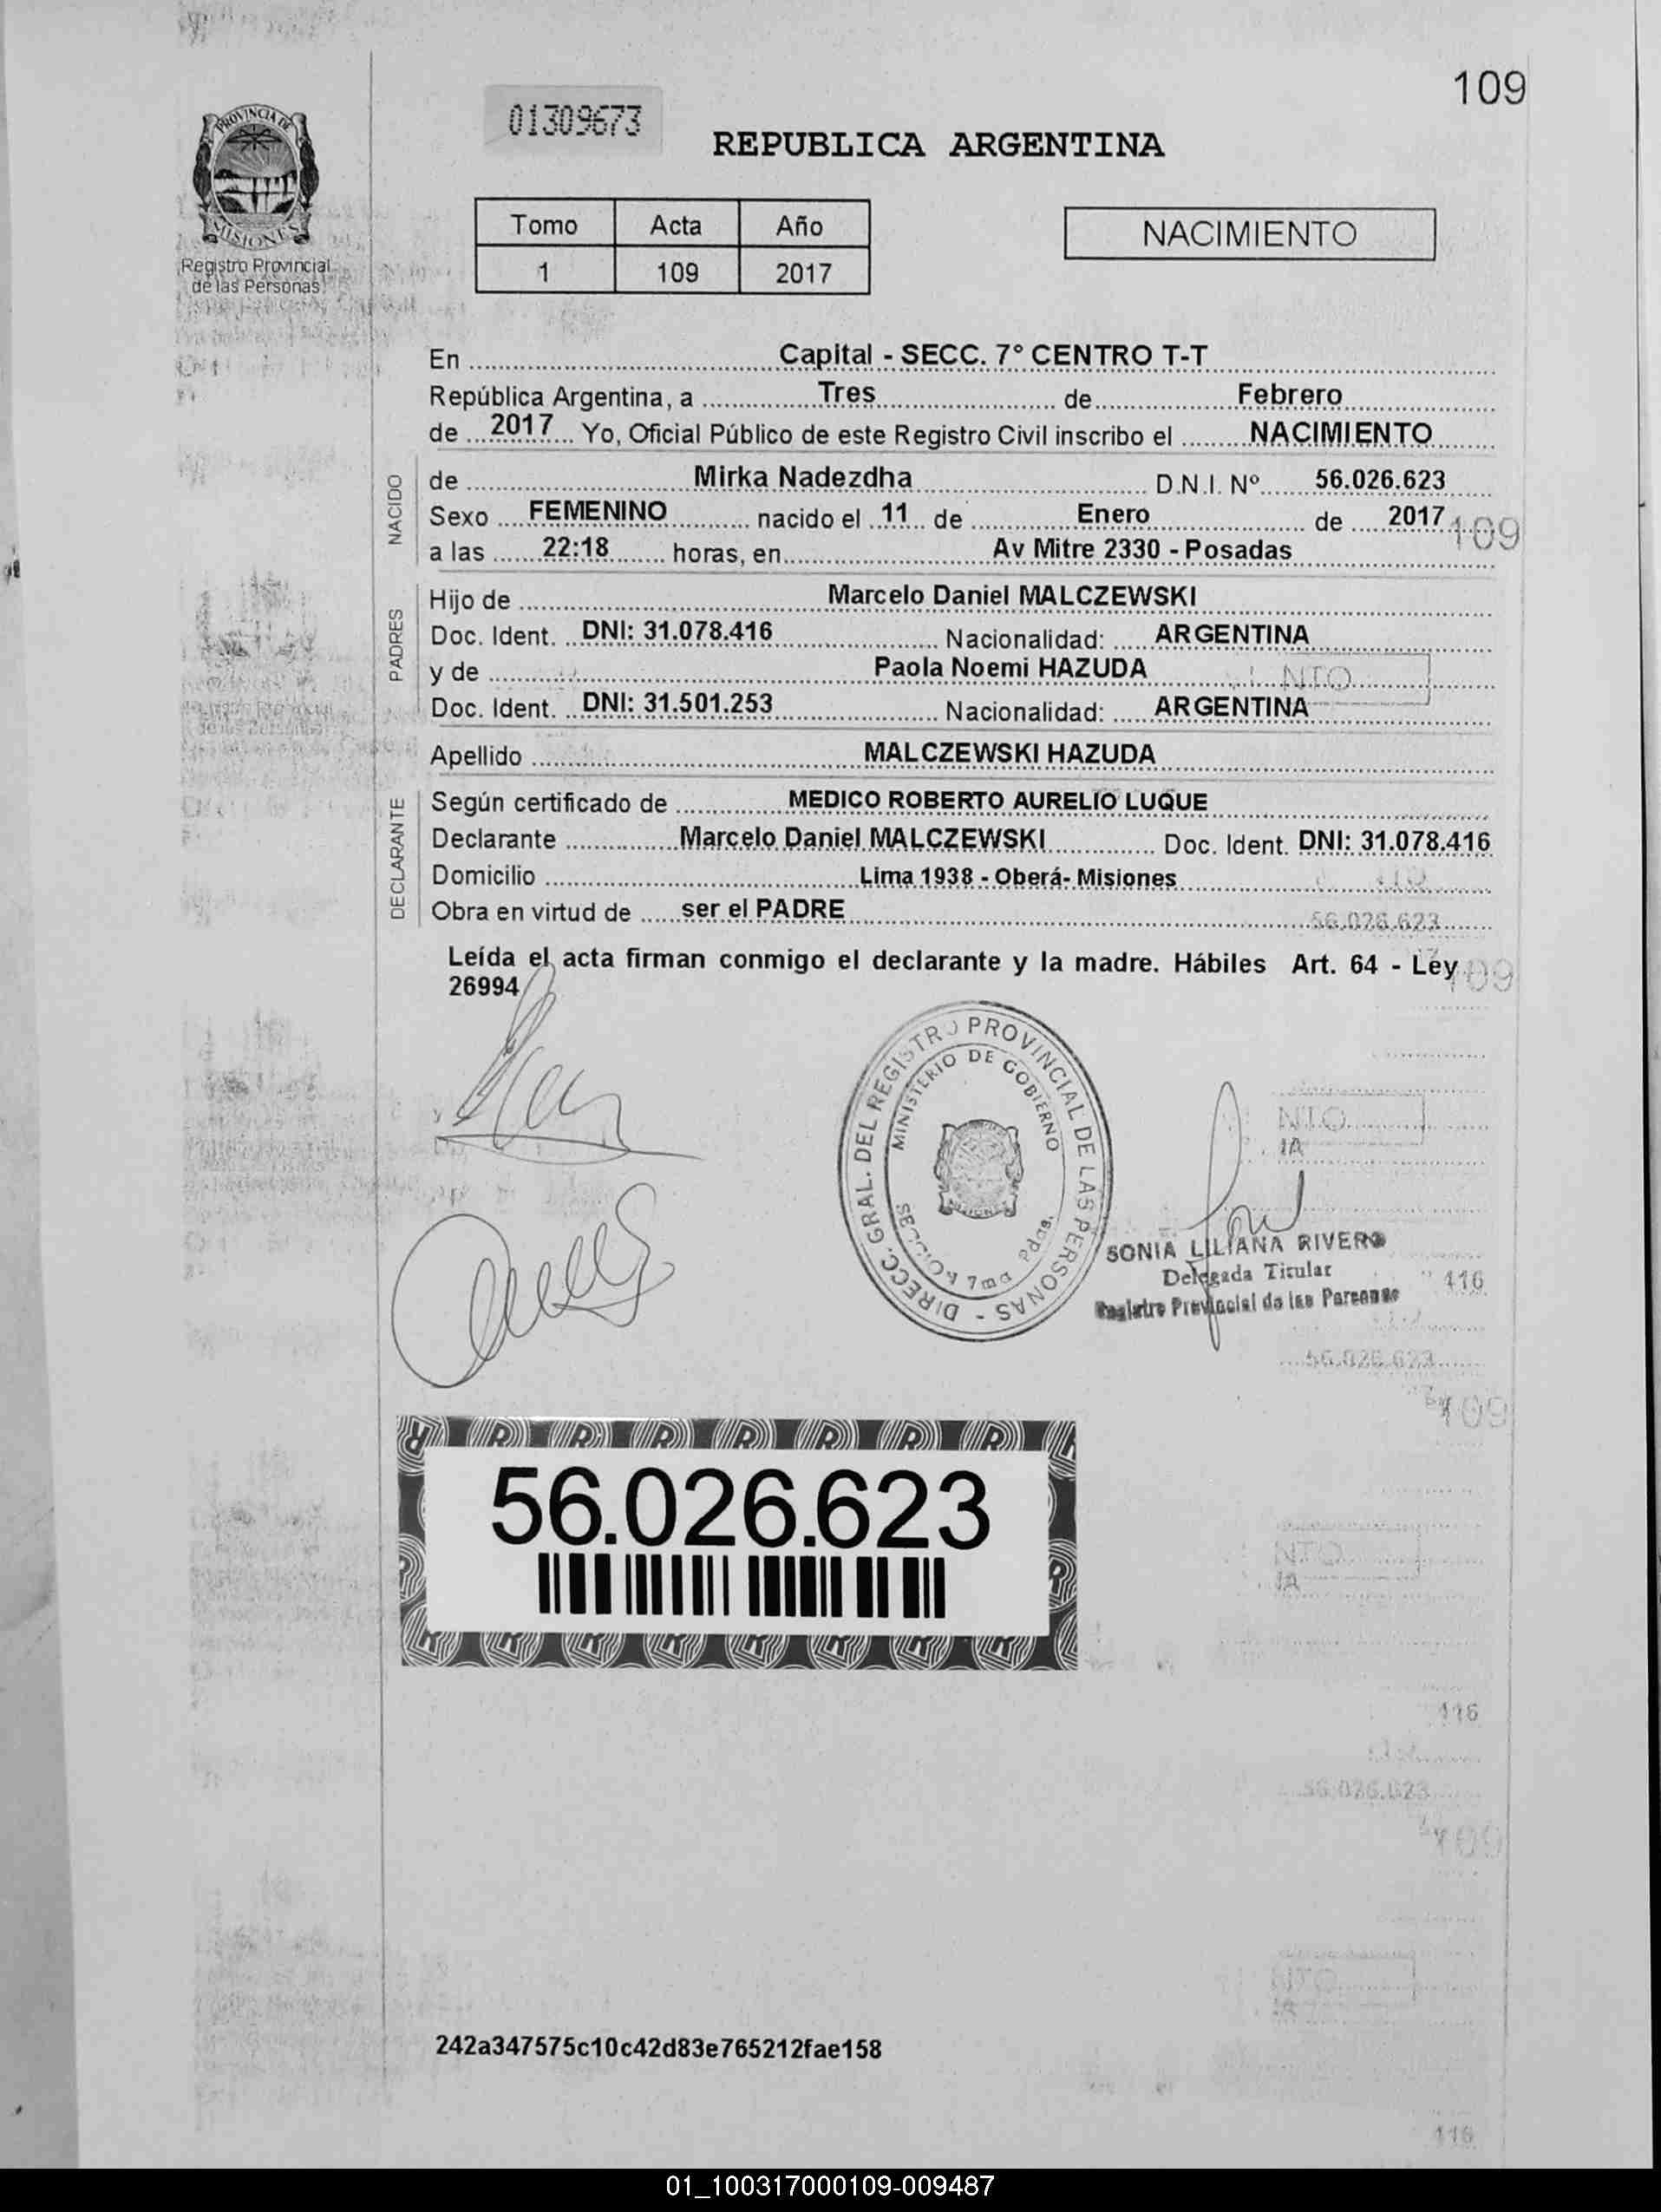 109
PROVINCIA DE
MISIONES
Registro Provincial
de las Personas
01309673
REPUBLICA ARGENTINA
Tomo Acta Año
1 109 2017
NACIMIENTO
En Capital - SECC. 7° CENTRO T-T
República Argentina, a Tres de Febrero
de 2017 Yo, Oficial Público de este Registro Civil inscribo el NACIMIENTO
NACIDO
de Mirka Nadezdha D.N.I. Nº 56.026.623
Sexo FEMENINO nacido el 11 de Enero de 2017
109
a las 22:18 horas, en Av Mitre 2330 - Posadas
PADRES
Hijo de Marcelo Daniel MALCZEWSKI
Doc. Ident. DNI: 31.078.416 Nacionalidad: ARGENTINA
y de Paola Noemi HAZUDA
NTO
Doc. Ident. DNI: 31.501.253 Nacionalidad: ARGENTINA
Apellido MALCZEWSKI HAZUDA
DECLARANTE
Según certificado de MEDICO ROBERTO AURELIO LUQUE
Declarante Marcelo Daniel MALCZEWSKI Doc. Ident. DNI: 31.078.416
Domicilio Lima 1938 - Oberá- Misiones
Obra en virtud de ser el PADRE
56.026.623
Leída el acta firman conmigo el declarante y la madre. Hábiles Art. 64 - Ley
26994
109
DIRECC. GRAL. DEL REGISTRO PROVINCIAL DE LAS PERSONAS -
MINISTERIO DE GOBIERNO
7ma Pdas.
NTO
IA
SONIA LILIANA RIVERO
Delegada Titular
Registro Provincial de las Personas
416
56.026.623
109
56.026.623
NTO
IA
116
56.026.623
109
NTO
242a347575c10c42d83e765212fae158
116
01_100317000109-009487